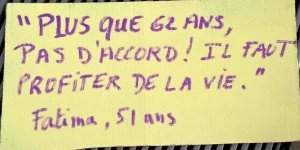 "PLUS QUE 62 ANS,
PAS D'ACCORD! IL FAUT
PROFITER DE LA VIE."
Fatima, 51 ans